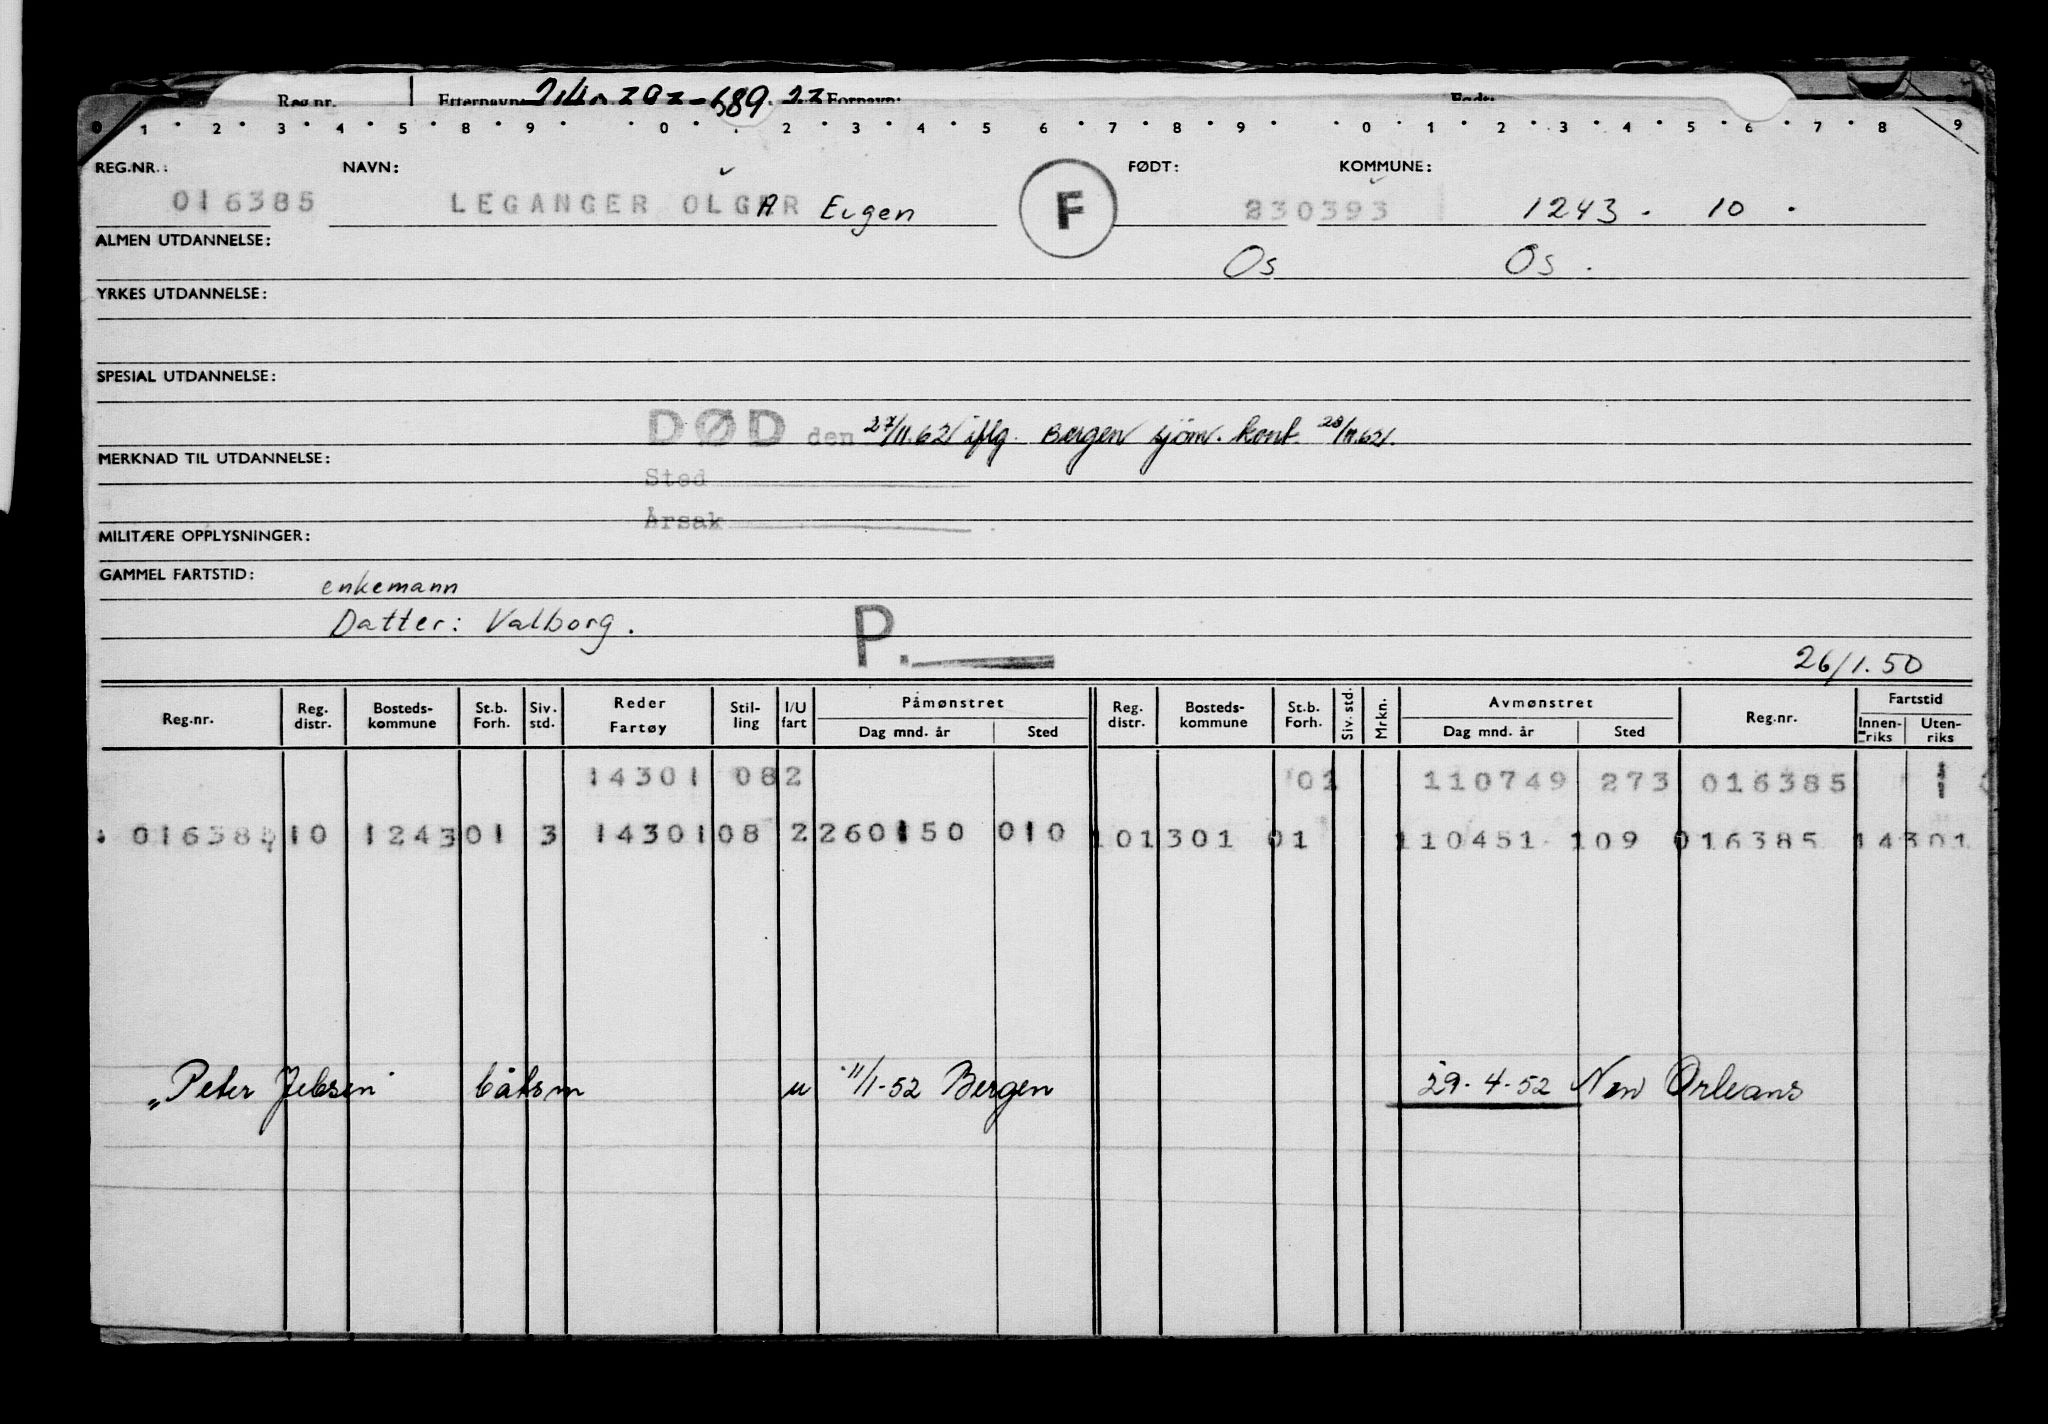 Reg.nr. Etternavn: Fornavn: Født:
0 1 2 3 4 5 8 9 0 2 3 4 5 6 7 8 9 0 1 2 3 4 5 6 7 8 9
REG.NR.: NAVN: FØDT: KOMMUNE:
016385 LEGANGER OLGAR Eugen F 230393 1243. 10.
ALMEN UTDANNELSE: Os Os.
YRKES UTDANNELSE:
SPESIAL UTDANNELSE:
DØD den 27/11.62 iflg. Bergen sjøm. kont. 28/11.62.
MERKNAD TIL UTDANNELSE:
Sted
Årsak
MILITÆRE OPPLYSNINGER:
GAMMEL FARTSTID: enkemann
Datter: Valborg.
P.
26/1.50
Reg.nr. Reg. distr. Bosteds-kommune St.b. Forh. Siv. std. Reder Fartøy Stil-ling I/U fart Påmønstret Dag mnd. år Sted Reg. distr. Bosteds-kommune St.b. Forh. Siv. std. Mrkn. Avmønstret Dag mnd. år Sted Reg.nr. Fartstid Innen-riks Uten-riks
14301 082 01 110749 273 016385 1
016385 10 1243 01 3 14301 08 2 260150 010 10 1301 01 110451 109 016385 14301
"Peter Jebsen" båtsm u 11/1-52 Bergen 29-4-52 New Orleans